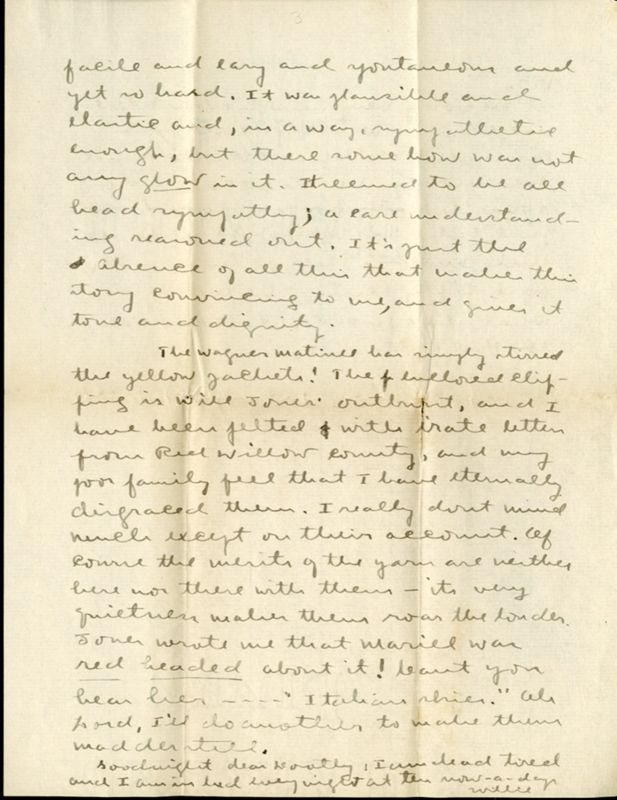 3
facile and easy and spontaneous and
yet so hard. It was plausible and
elastic and, in a way, sympathetic
enough, but there some how was not
any glow in it. It seemed to be all
head sympathy; a case understand-
ing reasoned out. It's just the
absence of all this that makes this
story convincing to me, and gives it
tone and dignity.
The Wagner Matinee has simply stirred
the yellow jackets! The enclosed clip-
ping is Will Jones' outburst, and I
have been pelted with irate letters
from Red Willow County, and my
poor family feel that I have eternally
disgraced them. I really dont mind
much except on their account. Of
course the merits of the yarn are neither
here nor there with them - its very
quietness makes them roar the louder.
Jones wrote me that Mariel was
red headed about it! Cant you
hear her ---- "Italian skies." Oh
Lord, I'll do another to make them
madder still.
Goodnight dear Dootly; I am dead tired
and I am in bed every night at ten now-a-days
Willie